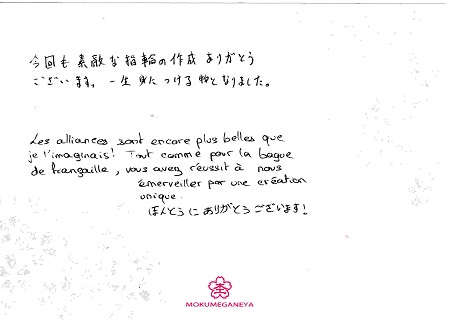 今回も素敵な指輪の作成ありがとう
ございます。一生身につける物となりました。
Les alliances sont encore plus belles que
je l'imaginais! Tout comme pour la bague
de fiançaille, vous avez réussit à nous
émerveiller par une création
unique.
ほんとうにありがとうございます!
MOKUMEGANEYA